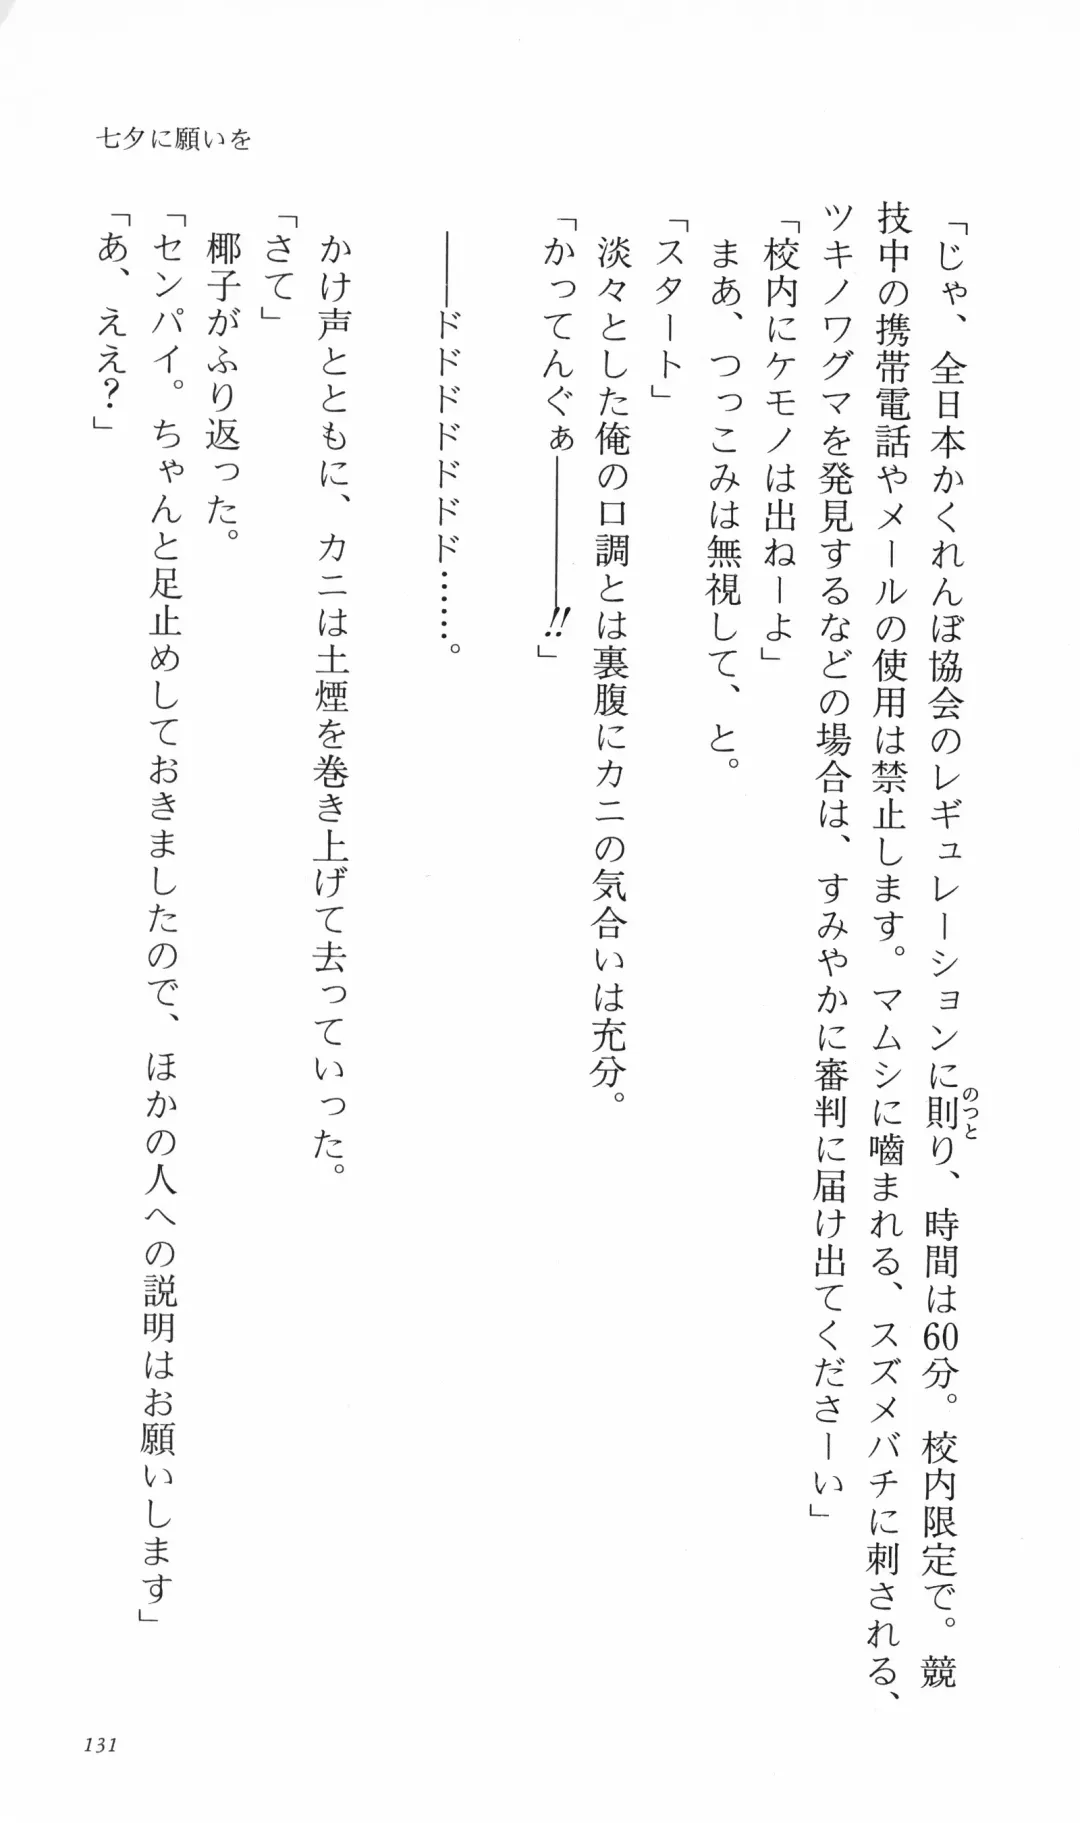 七夕に願いを
「じゃ、全日本かくれんぼ協会のレギュレーションに則り、時間は60分。校内限定で。競
のっと
技中の携帯電話やメールの使用は禁止します。マムシに嚙まれる、スズメバチに刺される、
ツキノワグマを発見するなどの場合は、すみやかに審判に届け出てくださーい」
「校内にケモノは出ねーよ」
まあ、つっこみは無視して、と。
「スタート」
淡々とした俺の口調とは裏腹にカニの気合いは充分。
「かってんぐぁ――――!!」
――ドドドドドドド……。
かけ声とともに、カニは土煙を巻き上げて去っていった。
「さて」
椰子がふり返った。
「センパイ。ちゃんと足止めしておきましたので、ほかの人への説明はお願いします」
「あ、ええ？」
131